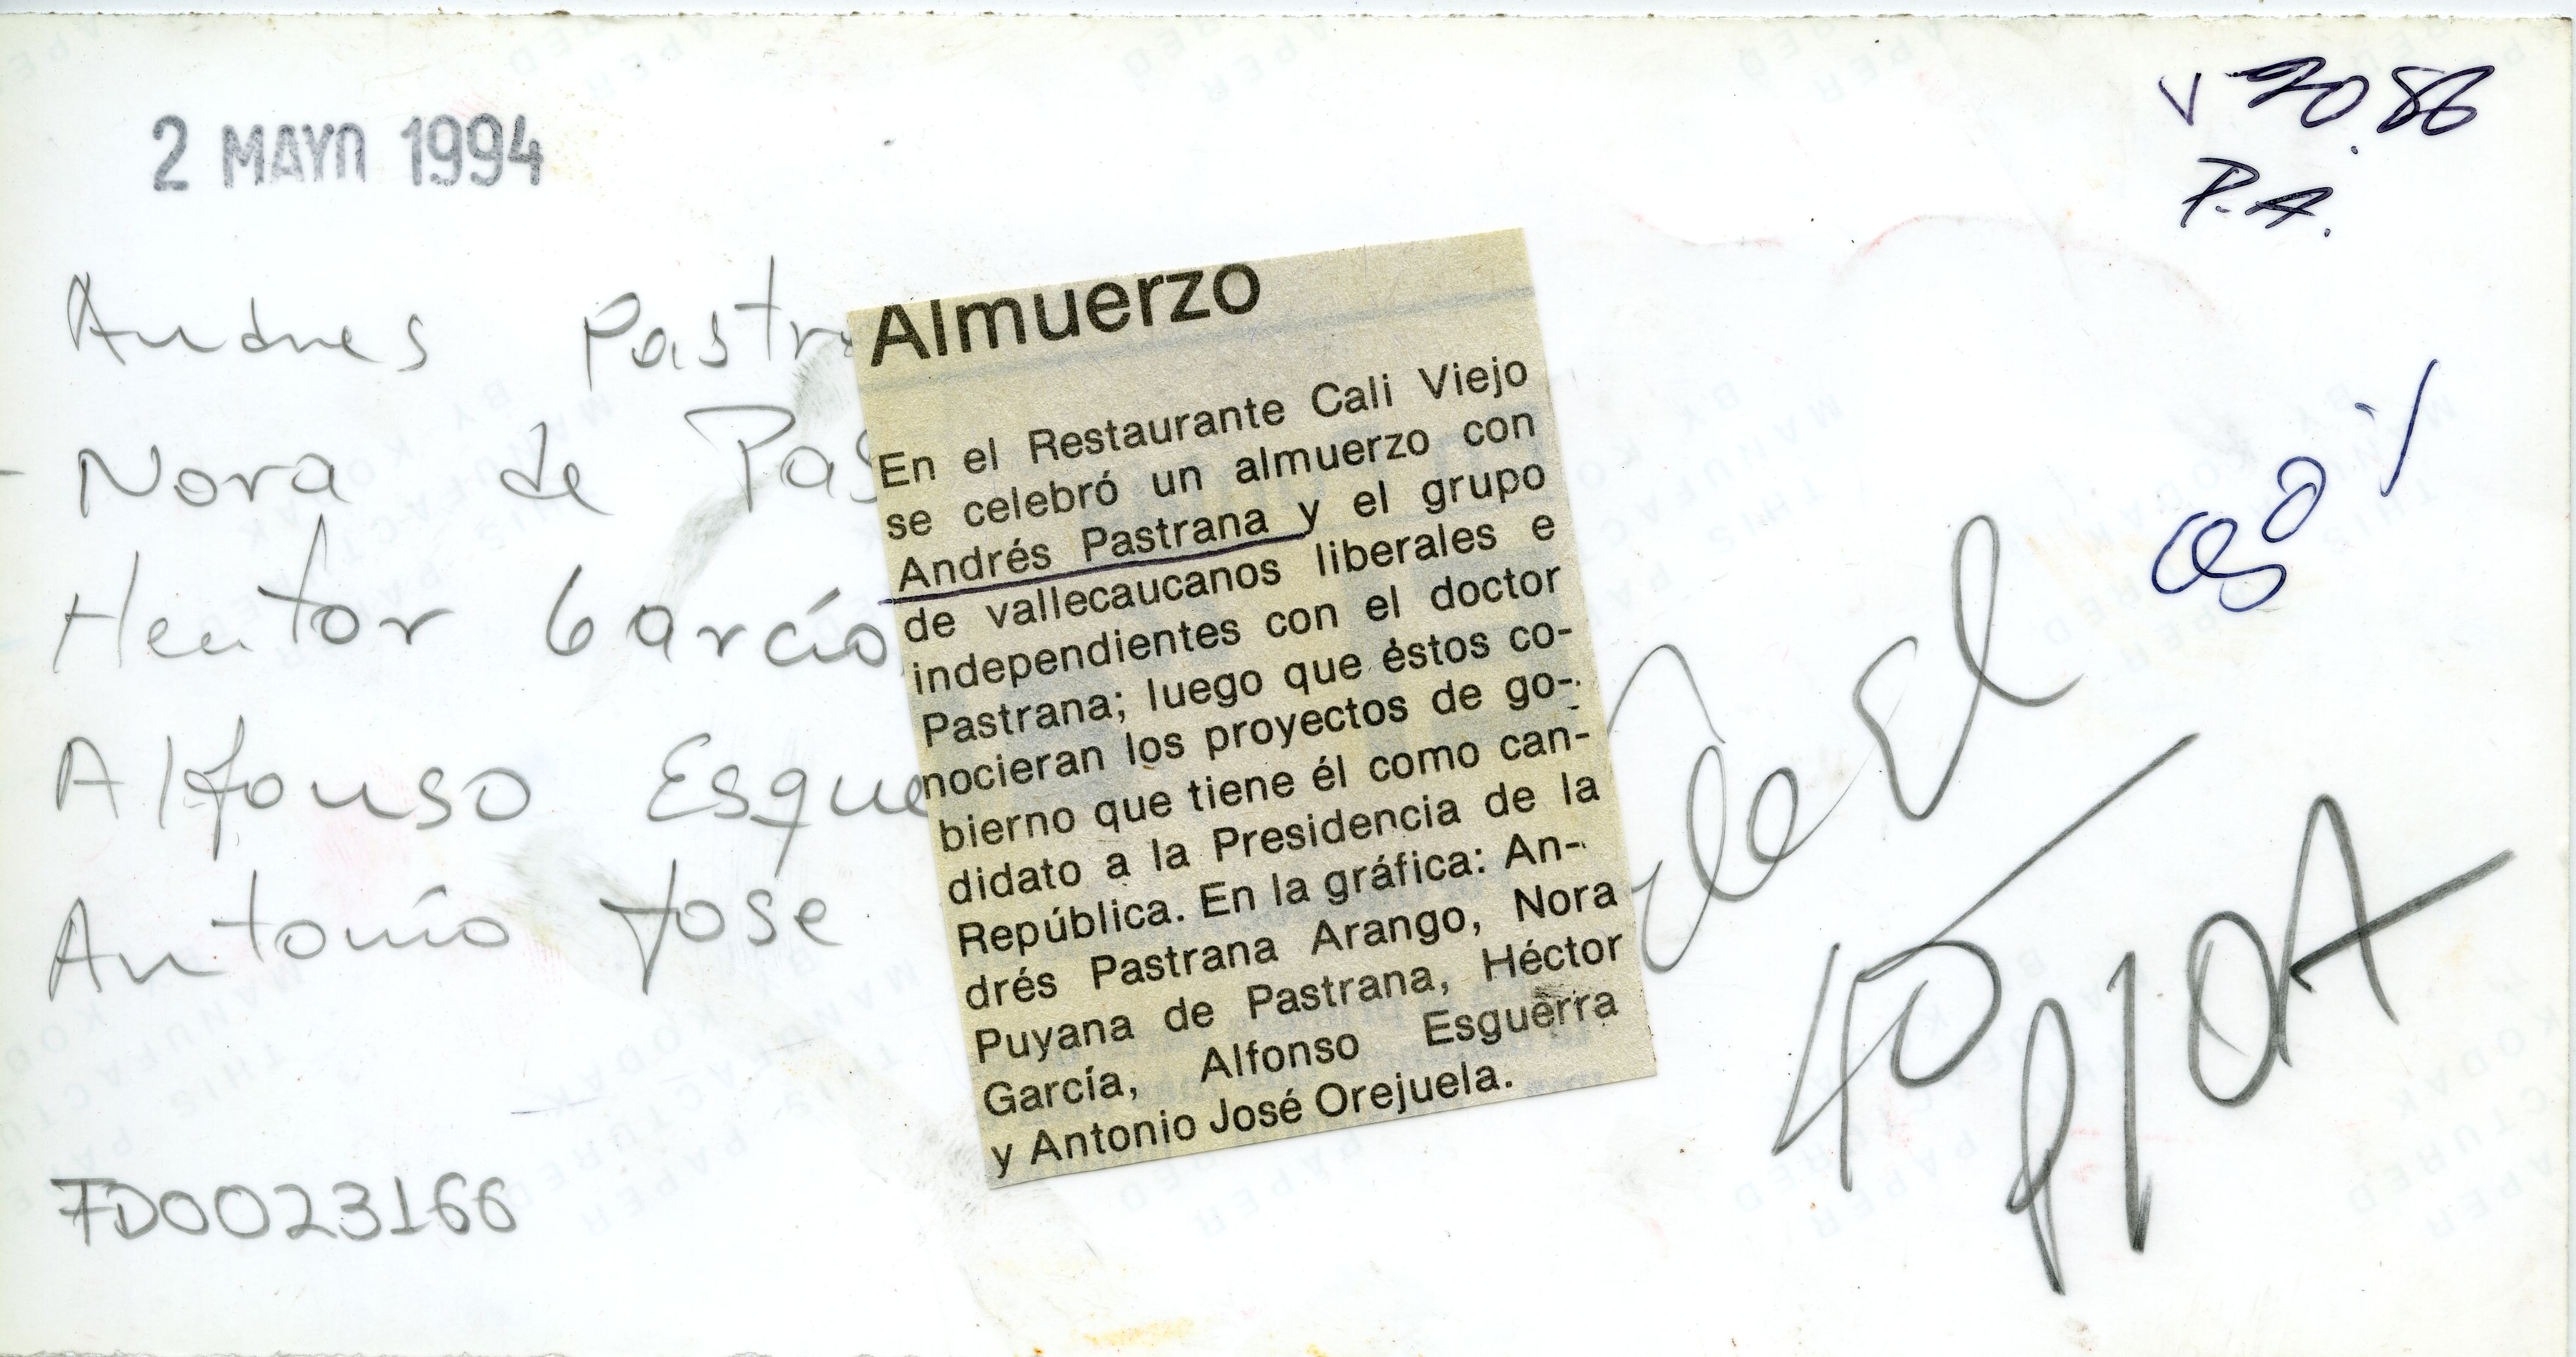 2 MAYO 1994
V 2086
P.A.
Andres Pastra
Nora de Pas
Hector García
Alfonso Esgue
Antonio Jose
FD0023166
Almuerzo
En el Restaurante Cali Viejo
se celebró un almuerzo con
Andrés Pastrana y el grupo
de vallecaucanos liberales e
independientes con el doctor
Pastrana; luego que éstos co-
nocieran los proyectos de go-
bierno que tiene él como can-
didato a la Presidencia de la
República. En la gráfica: An-
drés Pastrana Arango, Nora
Puyana de Pastrana, Héctor
García, Alfonso Esguerra
y Antonio José Orejuela.
40
P10A